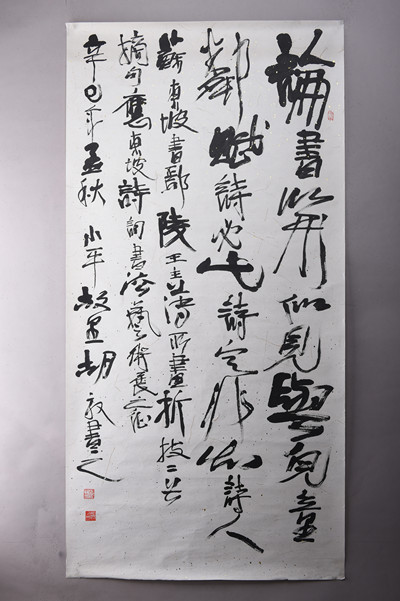 論書以形似見與兒童
鄰賦詩必此詩定非知詩人
蘇東坡書鄢陵王主簿所畫折枝二首
摘句應東坡詩詞書法藝術展之徵
辛巳年孟秋 小平故里胡書之